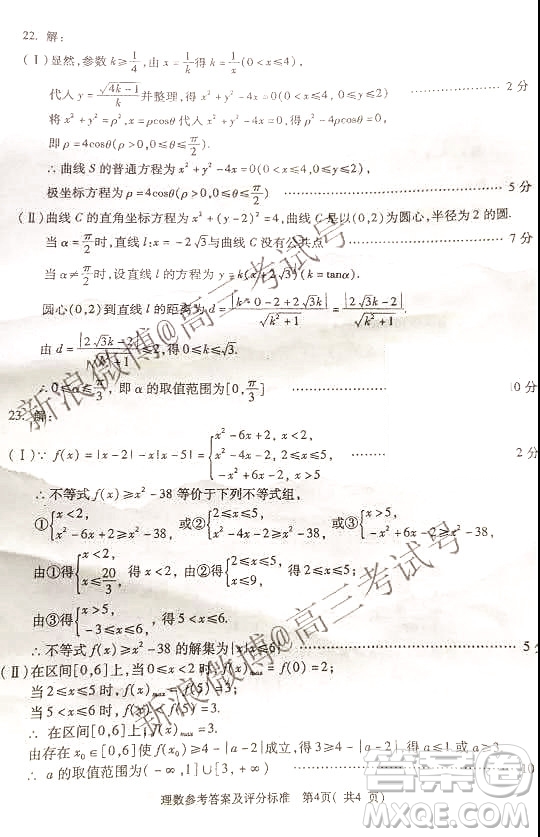 22. 解：
(Ⅰ)显然，参数 k≥1/4，由 x=1/k 得 k=1/x(0<x≤4)，
代入 y=√(4k-1)/k 并整理，得 x²+y²-4x=0(0<x≤4，y≥0) ………… 2分
将 x²+y²=ρ²，x=ρcosθ 代入 x²+y²-4x=0，得 ρ²-4ρcosθ=0，
即 ρ=4cosθ(ρ>0，0≤θ<π/2)
∴ 曲线 S 的普通方程为 x²+y²-4x=0(0<x≤4，y≥0)，
极坐标方程为 ρ=4cosθ(ρ>0，0≤θ<π/2) ………… 5分
(Ⅱ)曲线 C 的直角坐标方程为 x²+(y-2)²=4，曲线 C 是以(0,2)为圆心，半径为 2 的圆.
当 α=π/2时，直线 l：x=-2√3与曲线 C 没有公共点 ………… 7分
当 α≠π/2时，设直线 l 的方程为 y=k(x+2√3)(k=tanα).
圆心(0,2)到直线 l 的距离为 d=|k·0-2+2√3k|/√(k²+1)=|2√3k-2|/√(k²+1)
由 d=|2√3k-2|/√(k²+1)≤2，得 0≤k≤√3.
∴0≤α≤π/3，即 α 的取值范围为[0,π/3] ………… 10分
23. 解：
(Ⅰ)∵ f(x)=|x-2|-x|x-5|={x²-6x+2，x<2; x²-4x-2，2≤x≤5; -x²+6x-2，x>5 ………… 2分
∴ 不等式 f(x)≥x²-38 等价于下列不等式组，
①{x<2, x²-6x+2≥x²-38, 或②{2≤x≤5, x²-4x-2≥x²-38, 或③{x>5, -x²+6x-2≥x²-38,
由①得{x<2, x≤20/3, 由②得{2≤x≤5, x≤9, 由③得{x>5, -3≤x≤6,
∴ 不等式 f(x)≥x²-38 的解集为{x|x≤6} ………… 5分
(Ⅱ)在区间[0,6]上，当 0≤x<2 时，f(x)max=f(0)=2；
当 2≤x≤5 时，f(x)max=3；
当 5<x≤6 时，f(x)<3.
∴ 在区间[0,6]上，f(x)max=3.
由存在 x₀∈[0,6]使 f(x₀)≥4-|a-2|成立，得 3≥4-|a-2|，得 a≤1 或 a≥3.
∴ a 的取值范围为(-∞,1]∪[3,+∞) ………… 10
理数参考答案及评分标准 第4页(共4页)
新浪微博@高三考试号
新浪微博@高三考试号